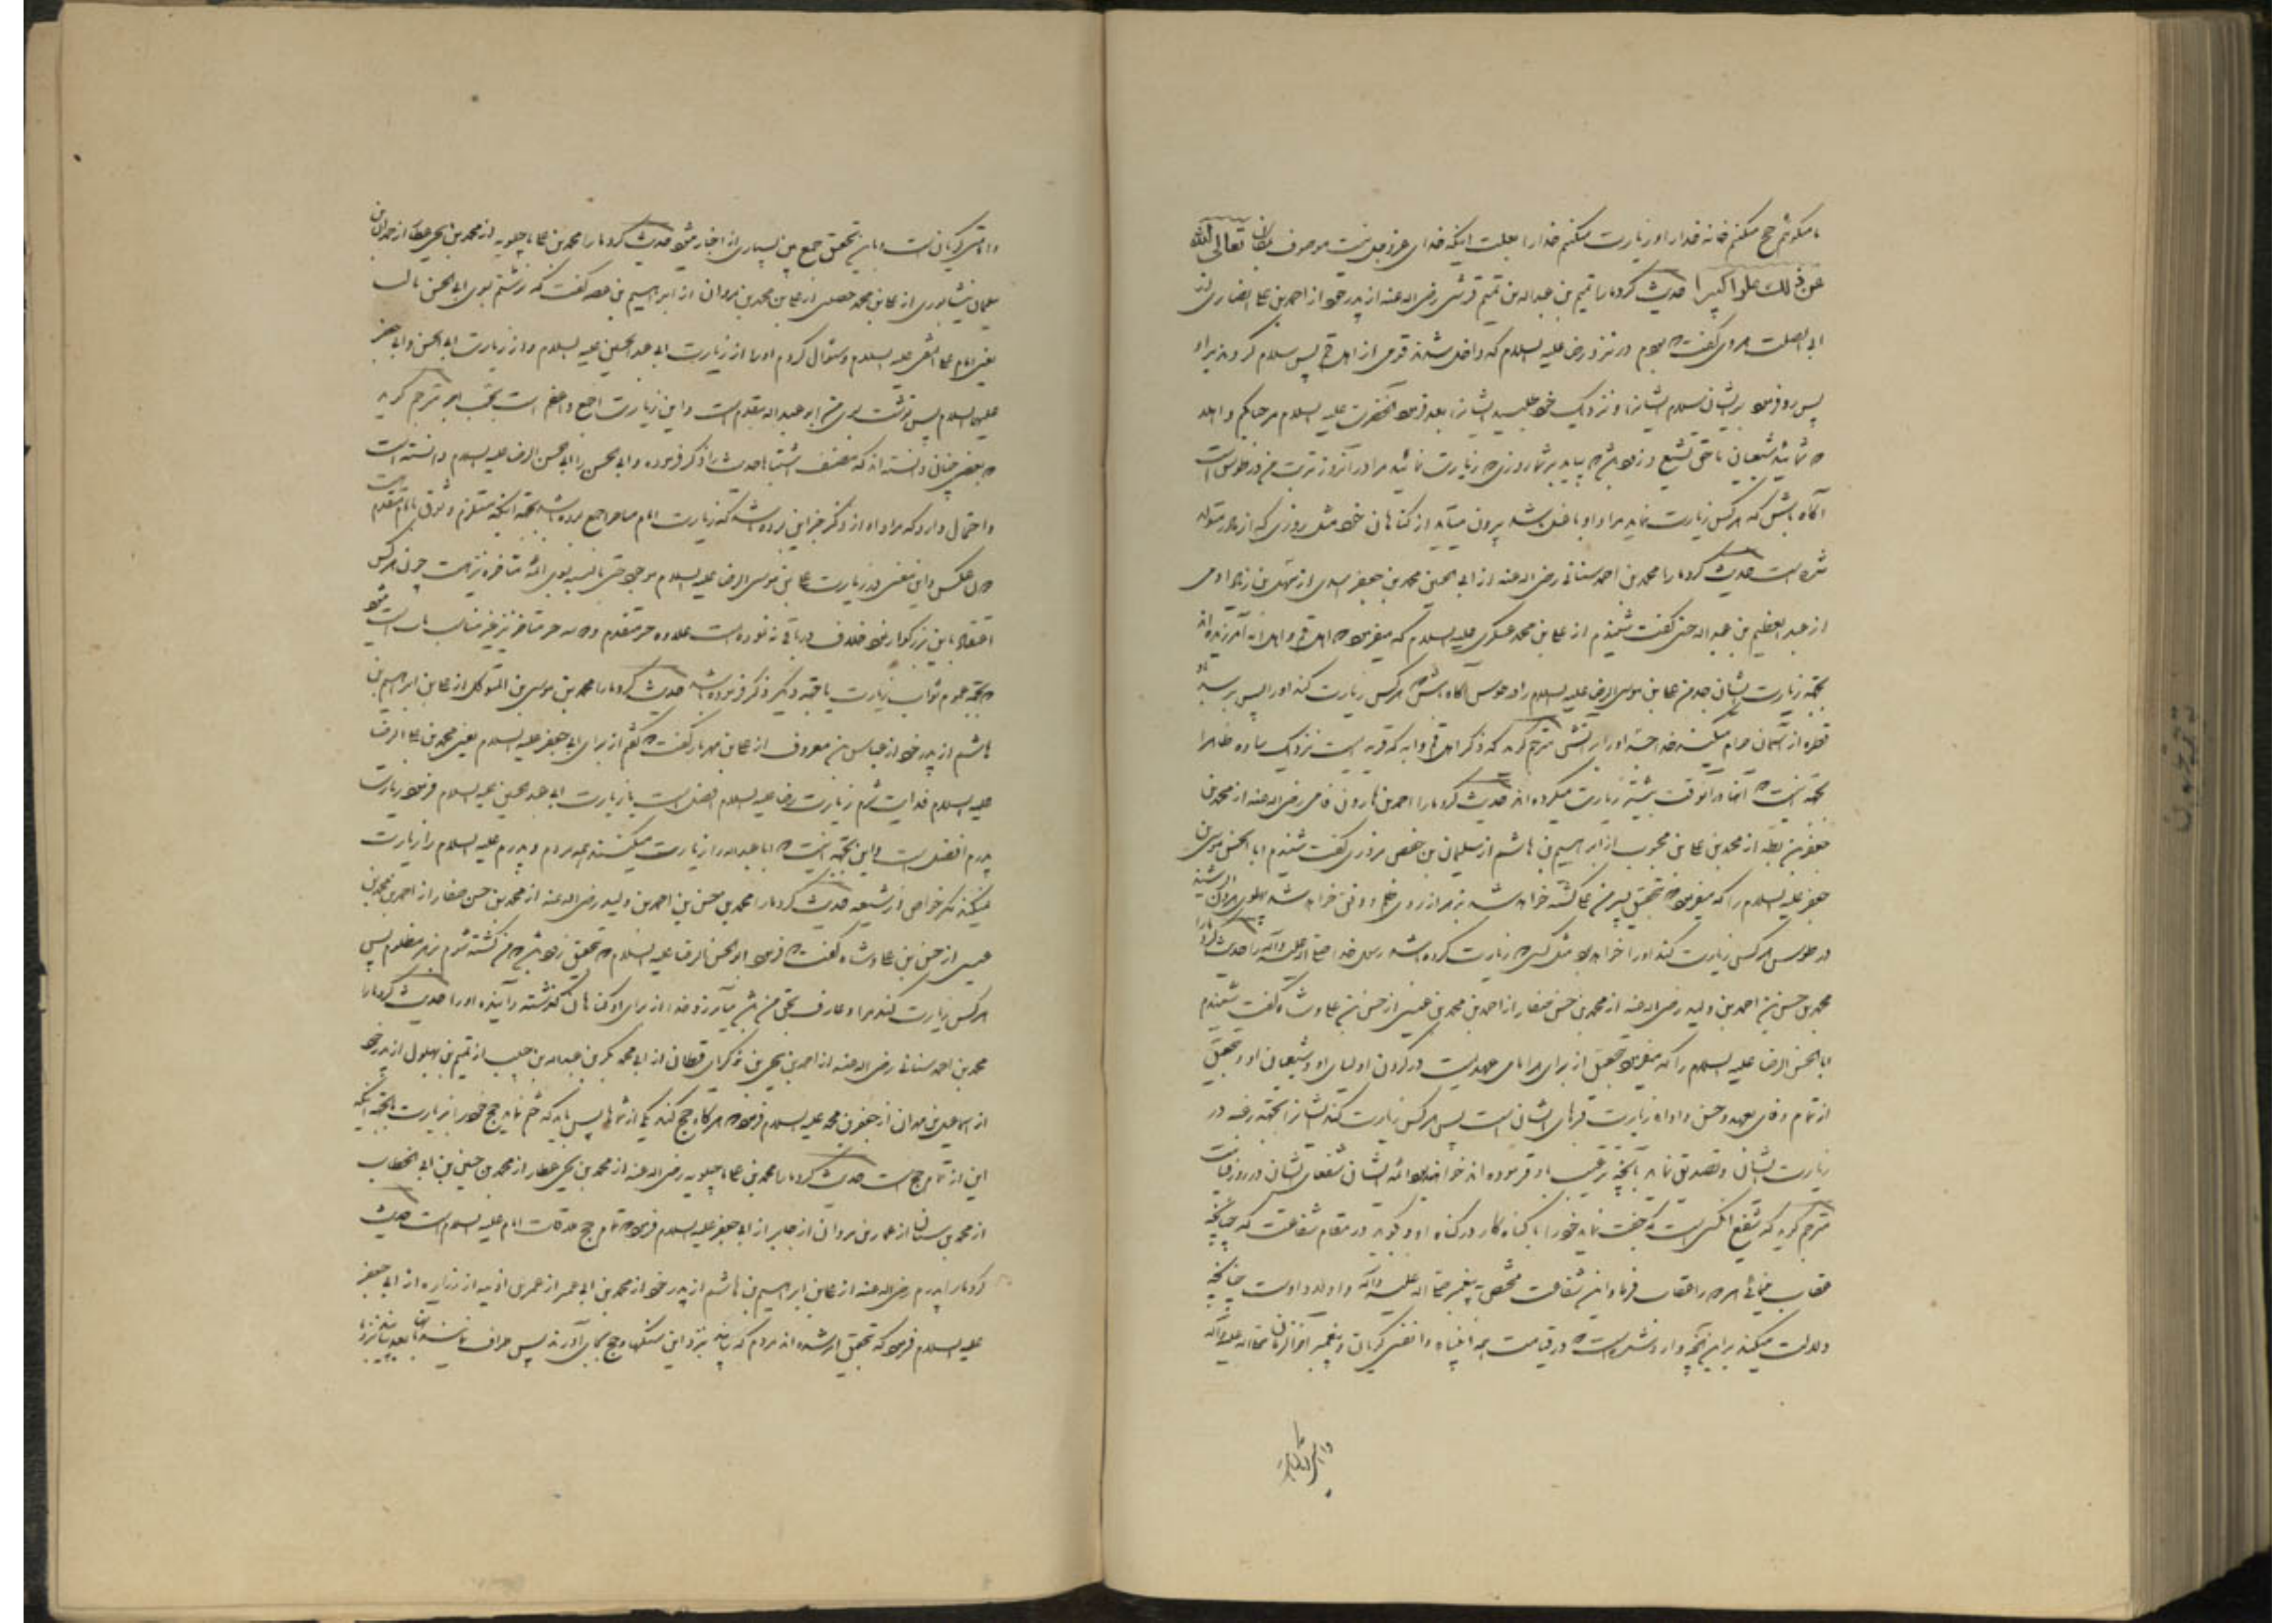 ما میکوئیم حج میکنم خانه خدا را و زیارت میکنم خدا را بعلت اینکه خدای عزوجل نیست موصوف بمکان تعالی الله
عن ذلک علوا کبیرا حدیث کرد ما را تمیم بن عبداله بن تمیم قرشی رضی اله عنه از پدر خود از احمد بن علی انصاری از
ابی الصلت هروی گفت که بودم در نزد رضا علیه السلام که داخل شدند قومی از اهل قم پس سلام کردند بر او
پس رد فرمود بر ایشان سلام ایشان را و نزدیک خود طلبید ایشان را بعد فرمود آنحضرت علیه السلام مرحبا بکم و اهلا
که شمائید شیعیان ما حق تشیع و زود باشد که بیاید بر شما روزی که زیارت نمائید مرا در آنروز تربت من در طوس است
آگاه باش که هر کس زیارت نماید مرا و او با غسل باشد بیرون میآید از گناهان خود مثل روزی که از مادر متولد
شده است حدیث کرد ما را محمد بن احمد سنانی رضی اله عنه از ابی الحسین محمد بن جعفر اسدی از سهل بن زیاد آدمی
از عبد العظیم بن عبد اله حسنی گفت شنیدم از علی بن محمد عسکری علیه السلام که میفرمود که اهل قم و اهل آبه آمرزیده اند
بجهة زیارت ایشان جد من علی بن موسی الرضا علیه السلام را در طوس آگاه باش که هر کس زیارت کند او را پس برسد باو
قطره از آسمان حرام میکند خدا جسد او را بر آتش مترجم گوید که ذکر اهل قم و آبه که قریه ایست نزدیک ساوه ظاهرا
بجهة اینست که آنها در آنوقت بیشتر زیارت میکرده اند حدیث کرد ما را احمد بن هارون فامی رضی اله عنه از محمد بن
جعفر بن بطه از محمد بن علی بن محبوب از ابراهیم بن هاشم از سلیمان بن حفص مروزی گفت شنیدم ابا الحسن موسی بن
جعفر علیه السلام را که میفرمود که بتحقیق پسر من علی کشته خواهد شد بزهر از روی ظلم و دفن خواهد شد پهلوی هارون الرشید
در طوس هر کس زیارت کند او را خواهد بود مثل کسی که زیارت کرده باشد رسول خدا صلی اله علیه و آله را حدیث کرد ما را
محمد بن حسن بن احمد بن ولید رضی اله عنه از محمد بن حسن صفار از احمد بن محمد بن عیسی از حسن بن علی وشاء گفت شنیدم
ابا الحسن الرضا علیه السلام را که میفرمود بتحقیق از برای هر امامی عهدیست در گردن اولیای او و شیعیان او و بتحقیق
از تمام وفای بعهد و حسن ادا زیارت قبرهای ایشان است پس هر کس زیارت کند ایشان را بجهة رغبه در
زیارت ایشان و تصدیق نماید بآنچه ترغیب باو فرموده اند خواهند بود ائمه ایشان شفعای ایشان در روز قیامت
مترجم گوید که شفیع آنکسی است که جفت نماید خود را با گناه کار در گناه او و گوید در مقام شفاعت که چنانچه
عقاب مینمائی هر دو را عقاب فرما و این شفاعت مختص به پیغمبر صلی اله علیه و آله و اولاد اوست چنانکه
دلالت میکند بر این آنچه وارد شده است که در قیامت همه انبیاء وا نفسی گویان و پیغمبر آخر الزمان صلی اله علیه و آله
وا امتی گویان است و باین تحقیق جمع بین بسیاری از اخبار میشود حدیث کرد ما را محمد بن علی ماجیلویه از محمد بن یحیی عطار از حمدان بن
سلیمان نیشابوری از علی بن محمد حصینی از علی بن محمد بن مروان از ابراهیم بن عقبه گفت که نوشتم بسوی ابی الحسن ثالث
یعنی امام علی النقی علیه السلام و سئوال کردم او را از زیارت ابی عبد الحسین علیه السلام و از زیارت ابی الحسن و ابی جعفر
علیهما السلام پس نوشت بسوی من ابو عبد اله مقدم است و این زیارت اجمع و اعظم است بحسب اجر مترجم گوید
که بعضی چنان دانسته اند که مصنف اشتباها حدیث را ذکر فرموده و ابی الحسن را ابی الحسن الرضا علیه السلام دانسته است
و احتمال دارد که مراد او از ذکر خبر این بوده باشد که زیارت امام متاخر اجمع بوده باشد بجهة آنکه مستلزم وثوق بامام مقدم است
که لا عکس و این معنی در زیارت علی بن موسی الرضا علیه السلام موجود حتی بالنسبه بسوی ائمه متاخره نیز هست چون هر کس
اعتقاد باین بزرگوار نمود خلاف در باقی ننموده است علاوه خبر متقدم و دو خبر متاخر نیز غیر مناسب باب است میشود
که بجهة عموم ثواب زیارت یا جهة دیگر ذکر فرموده باشد حدیث کرد ما را محمد بن موسی بن المتوکل از علی بن ابراهیم بن
هاشم از پدر خود از عباس بن معروف از علی بن مهزیار گفت که گفتم از برای ابی جعفر علیه السلام یعنی محمد بن علی الرضا
علیه السلام فدایت شوم زیارت رضا علیه السلام افضل است یا زیارت ابی عبد الحسین علیه السلام فرمود زیارت
پدرم افضل است و این بجهة اینست که ابا عبد اله را زیارت میکنند همه مردم و پدرم علیه السلام را زیارت
نمیکند مگر خواص از شیعه حدیث کرد ما را محمد بن حسن بن احمد بن ولید رضی اله عنه از محمد بن حسن صفار از احمد بن محمد بن
عیسی از حسن بن علی وشاء گفت که فرمود ابو الحسن الرضا علیه السلام که بتحقیق زود باشد که من کشته شوم بزهر مظلوم پس
هر کس زیارت کند مرا و عارف بحق من باشد بیامرزد خدا از برای او گناهان گذشته و آینده او را حدیث کرد ما را
محمد بن احمد سنانی رضی اله عنه از احمد بن یحیی بن زکریای قطان از ابی محمد بکر بن عبد اله بن حبیب از تمیم بن بهلول از پدر خود
از اسماعیل بن مهران از جعفر بن محمد علیه السلام فرمود که هر گاه حج کند یکی از شماها پس باید که ختم نماید حج خود را بزیارت ما بجهة اینکه
این از تمامی حج است حدیث کرد ما را محمد بن علی ماجیلویه رضی اله عنه از محمد بن یحیی عطار از محمد بن حسین بن ابی الخطاب
از محمد بن سنان از عمار بن مروان از جابر از ابی جعفر علیه السلام فرمود که تمامی حج ملاقات امام علیه السلام است حدیث
کرد ما را پدرم رضی اله عنه از علی بن ابراهیم بن هاشم از پدر خود از محمد بن ابی عمیر از عمر بن اذینه از زراره از ابی جعفر
علیه السلام فرمود که بتحقیق امر شده اند مردم که بیایند بنزد این سنگها و حج بجای آورند پس طواف نمایند بآنها بعد بیایند نزد ما